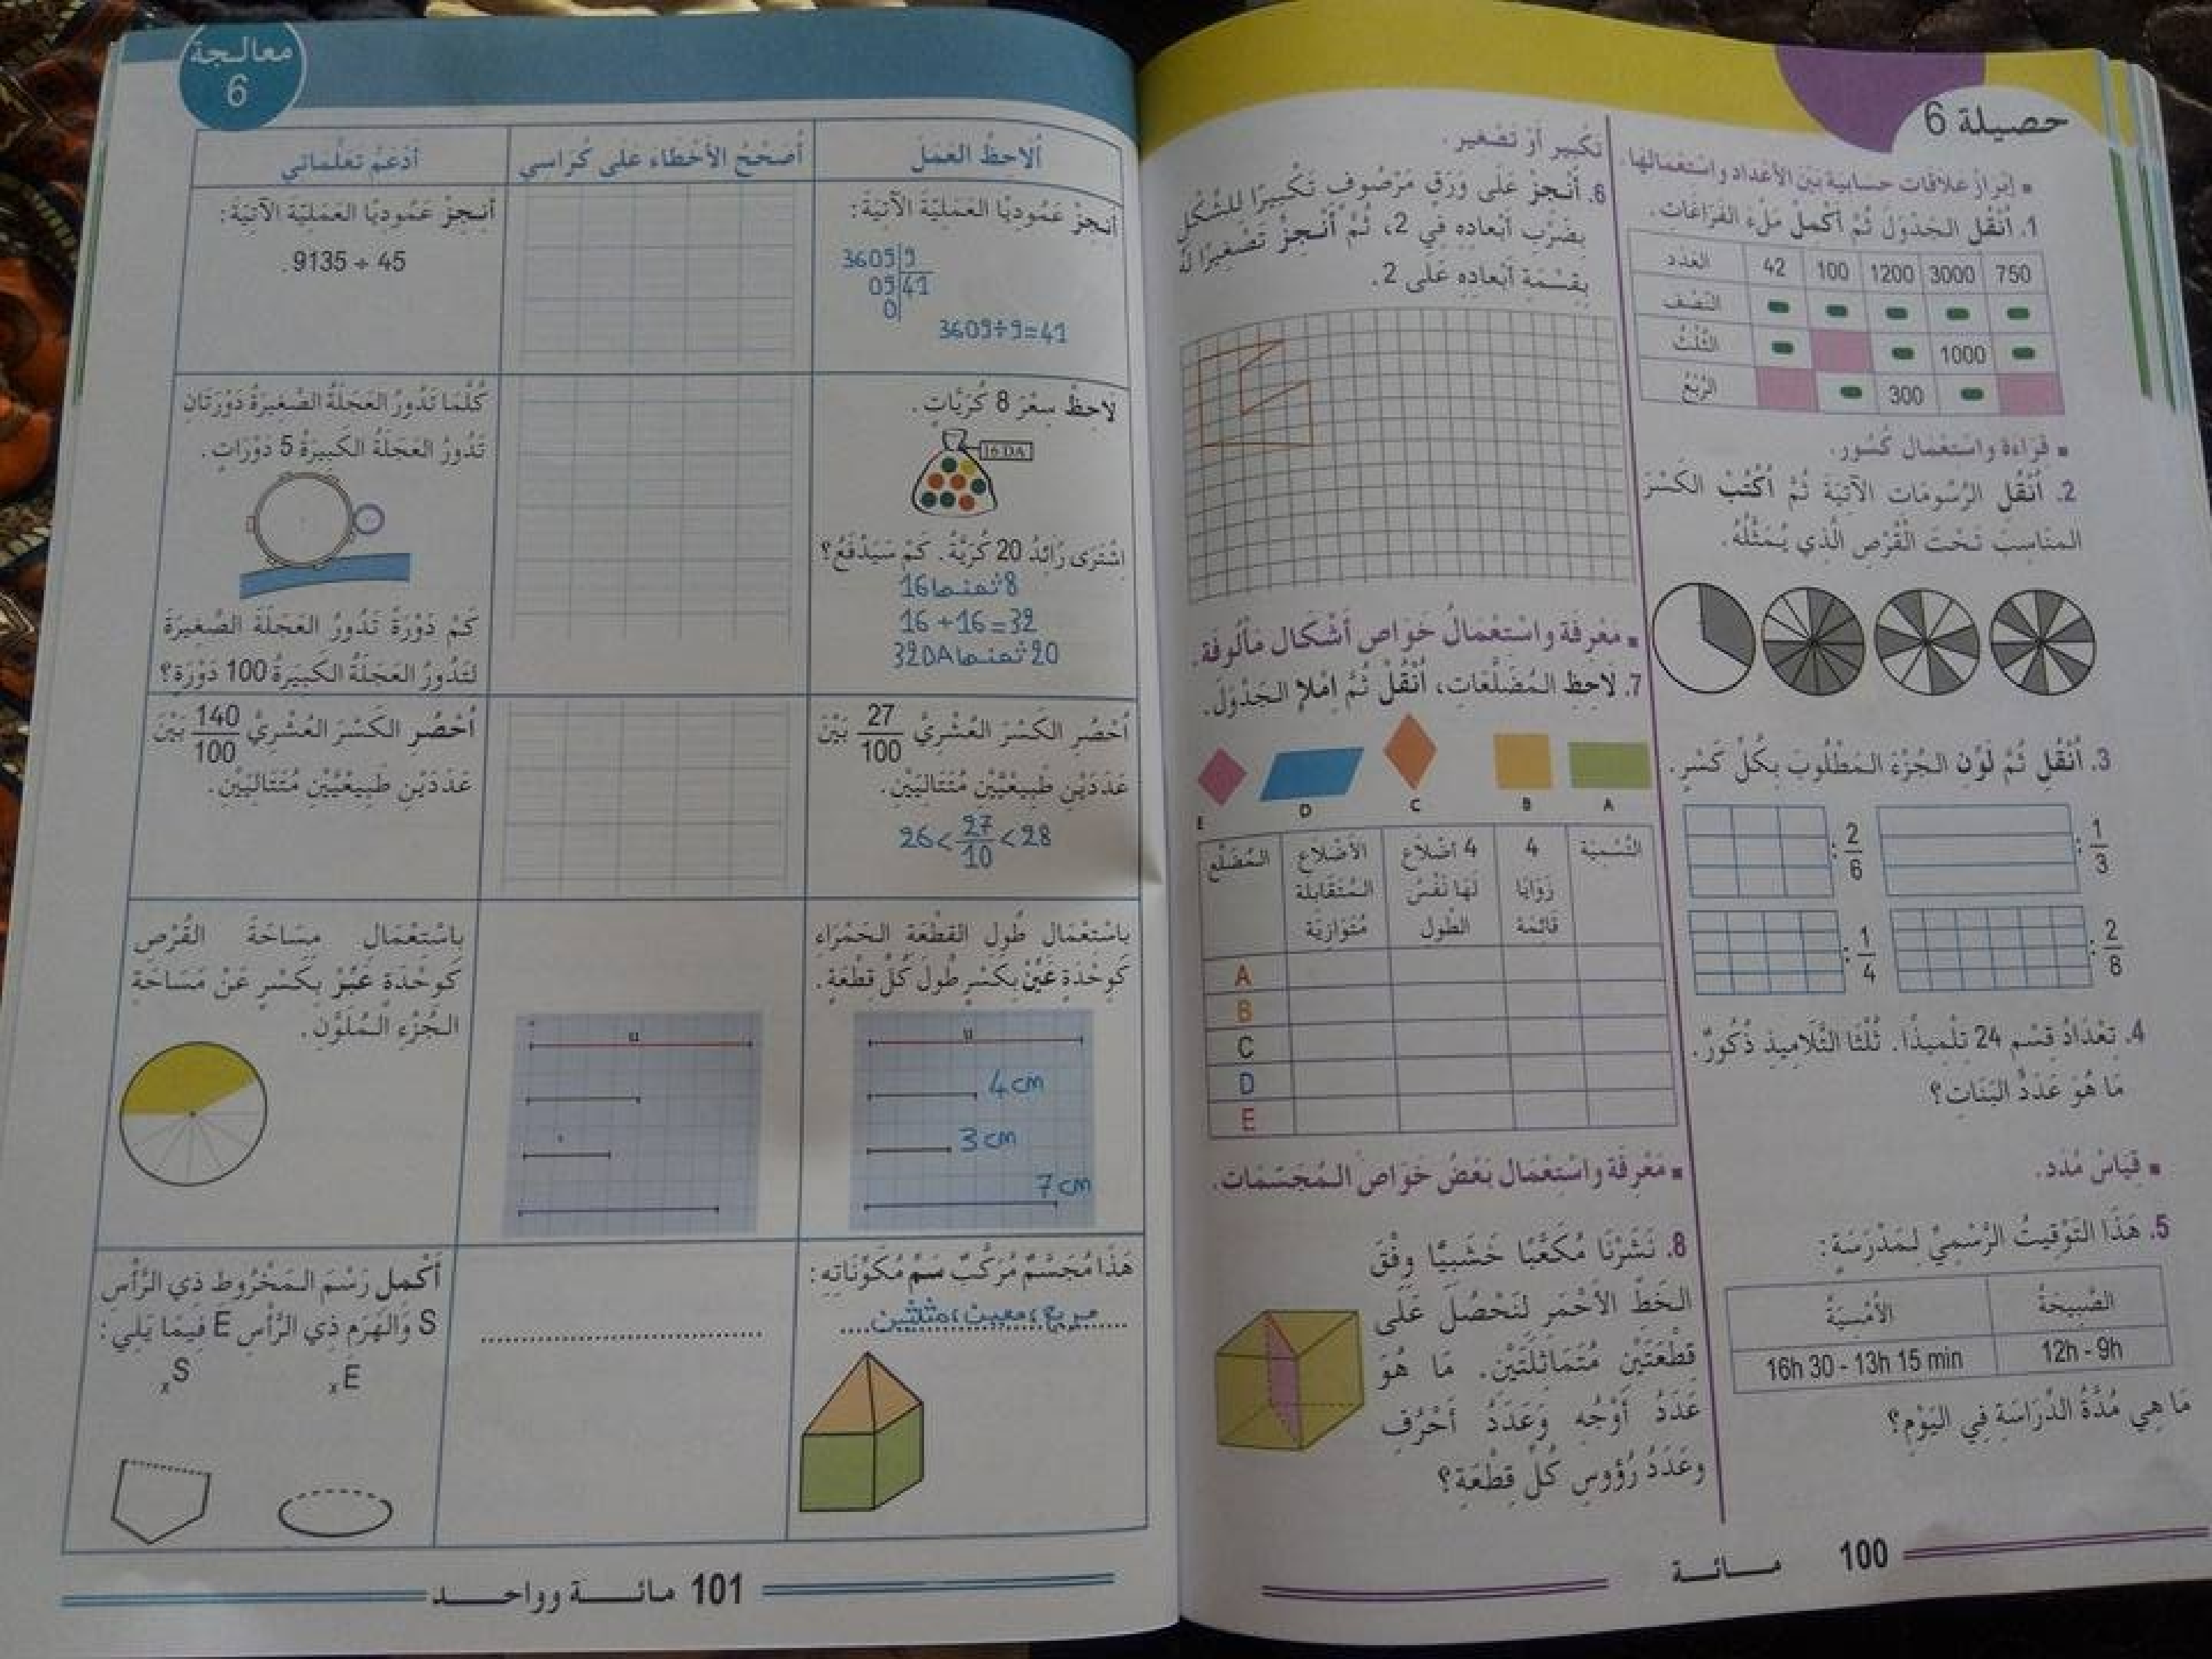 حصيلة 6
▪ إبراز علاقات حسابية بين الأعداد واستعمالها.
1. أَنْقُل الجَدْوَلَ ثُمَّ أَكْمِلْ مَلْءَ الفَرَاغَاتِ.
العَدَد 42 100 1200 3000 750
النّصْف
الثُّلُثُ 1000
الرُّبْعُ 300
▪ قراءة واستعمال كُسُور.
2. أَنْقُل الرُّسُومَات الآتِيَةَ ثُمَّ اُكْتُب الكَسْرَ
المنَاسِبَ تَحْتَ الْقُرْصِ الَّذِي يُمَثِّلُهُ.
3. أَنْقُل ثُمَّ لَوِّن الجُزْءَ المَطْلُوبَ بِكُلِّ كَسْرٍ.
1/3 :
2/6 :
2/8 :
1/4 :
4. تِعْدَادُ قِسْم 24 تِلْمِيذًا. ثُلُثَا التَّلَامِيذِ ذُكُورٌ.
مَا هُوَ عَدَدُ البَنَاتِ؟
▪ قِيَاسُ مُدَد.
5. هَذَا التَّوْقِيتُ الرَّسْمِيُّ لِمَدْرَسَةٍ:
الصَّبِيحَةُ الأُمْسِيَةُ
12h - 9h 16h 30 - 13h 15 min
مَا هِي مُدَّةُ الدِّرَاسَةِ فِي اليَوْمِ؟
تَكْبِير أَوْ تَصْغير.
6. أَنْجِزْ عَلَى وَرَقٍ مَرْصُوفٍ تَكْبِيرًا لِلشَّكْلِ
بِضَرْبِ أَبْعَادِهِ فِي 2، ثُمَّ أَنْجِزْ تَصْغِيرًا لَهُ
بِقِسْمَةِ أَبْعَادِهِ عَلَى 2.
▪ مَعْرِفَة واسْتِعْمَالُ خَوَاص أَشْكَال مَأْلُوفَة.
7. لَاحِظ المُضَلَّعَاتِ، أَنْقُلْ ثُمَّ اِمْلَإ الجَدْوَلَ.
E D C B A
المُضَلَّع الأَضْلَاع المُتَقَابِلَة مُتَوَازِيَة 4 أَضْلَاع لَهَا نَفْسُ الطُّول 4 زَوَايَا قَائِمَة التَّسْمِيَة
A
B
C
D
E
▪ مَعْرِفَة واسْتِعْمَال بَعْضُ خَوَاصّ المُجَسَّمَات.
8. نَشَرْنَا مُكَعَّبًا خَشَبِيًّا وِفْقَ
الخَطِّ الأَحْمَرِ لِنَحْصُلَ عَلَى
قِطْعَتَيْنِ مُتَمَاثِلَتَيْنِ. مَا هُوَ
عَدَدُ أَوْجُهِ وَعَدَدُ أَحْرُفِ
وعَدَدُ رُؤُوسِ كُلِّ قِطْعَةٍ؟
100 مائة
معالجة
6
أُلَاحِظُ العَمَلَ
أُصَحِّحُ الأَخْطَاءَ عَلَى كُرَّاسِي
أَدْعَمُ تَعَلُّمَاتِي
أنجِزْ عَمُوديًا العَمَلِيّةَ الآتِيَةَ:
3609 9
09 41
0
3609÷9=41
أنجِزْ عَمُوديًا العَمَلِيّةَ الآتِيَةَ:
9135 ÷ 45.
لَاحِظْ سِعْرَ 8 كُرَيَّاتٍ.
16 DA
اِشْتَرَى رَائِدُ 20 كُرَيَّةً. كَمْ سَيَدْفَعُ؟
8 ثمنها 16
16+16=32
20 ثمنها 32DA
كُلَّمَا تَدُورُ العَجَلَةُ الصَّغِيرَةُ دَوْرَتَانِ
تَدُورُ العَجَلَةُ الكَبِيرَةُ 5 دَوْرَاتٍ.
كَمْ دَوْرَةً تَدُورُ العَجَلَة الصَّغِيرَةَ
لِتَدُورُ العَجَلَةُ الكَبِيرَةُ 100 دَوْرَةٍ؟
اُحْصُر الكَسْرَ العُشْرِيَّ 27/100 بَيْنَ
عَدَدَيْنِ طَبِيعِيَّيْنِ مُتَتَالِيَيْنِ.
26 < 27/10 < 28
اُحْصُر الكَسْرَ العُشْرِيَّ 140/100 بَيْنَ
عَدَدَيْنِ طَبِيعِيَّيْنِ مُتَتَالِيَيْنِ.
باسْتِعْمَال طُولِ القِطْعَة الحَمْرَاء
كَوِحْدَةٍ عَيِّنْ بِكَسْرٍ طُولَ كُلِّ قِطْعَةٍ.
u
4 cm
3 cm
7 cm
u
بِاسْتِعْمَالِ مِسَاحَةُ القُرْصِ
كَوِحْدَةٍ عَبِّرْ بِكَسْرٍ عَنْ مَسَاحَةِ
الجُزْءِ المُلوَّنِ.
هَذَا مُجَسَّمٌ مُرَكَّبٌ سَمِّ مُكَوِّنَاتِهِ:
مربع، معين، مثلثين
أَكْمِل رَسْمَ المَخْرُوط ذِي الرَّأْسِ
S وَالهَرَمِ ذِي الرَّأْسِ E فِيمَا يَلِي:
S× E×
101 مائة وواحد